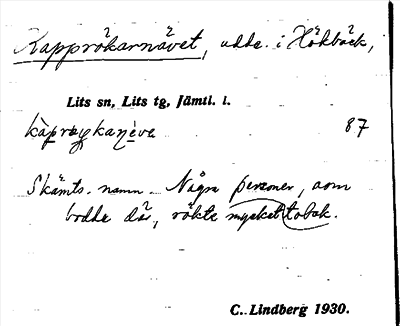 Kapprökarnävet, udde i Hökbäck,
Lits sn, Lits tg, Jämtl. l.
87
Skämts. namn. Några personer, som
bodde där, rökte mycket tobak.
C. Lindberg 1930.